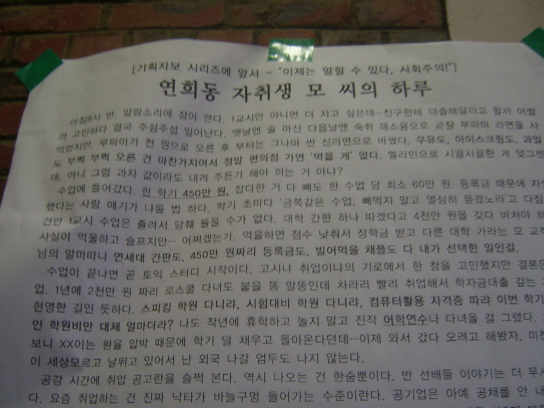 [기획자보 시리즈에 앞서 - "이제는 말할 수 있다, 사회주의!"]
연희동 자취생 모 씨의 하루
아침8시 반, 알람소리에 잠이 깬다. 1교시만 아니면 더 자고 싶은데…친구한테 대출해달라고 할까 어쩔
까 고민하다 결국 주섬주섬 일어난다. 옛날엔 술 마신 다음날엔 숙취 해소용으로 곧잘 무파마 라면을 사
먹었지만, 무파마가 천 원으로 오른 후 부터는 그나마 싼 신라면으로 바꿨다. 우유도, 아이스크림도, 과일
도 부쩍 부쩍 오른 건 마찬가지여서 정말 편의점 가면 '먹을 게' 없다. 멜라민으로 시끌시끌한 게 엊그젠
데, 아니 그럼 과자 값이라도 내려 주든가 해야 하는 거 아냐?
수업에 들어갔다. 한 학기 450만 원, 잡다한 거 다 빼도 한 수업 당 최소 60만 원. 등록금 때문에 자살
했다는 사람 얘기가 나올 법 하다. 학기 초마다 '금쪽같은 수업, 빼먹지 말고 열심히 들겠노라'고 다짐
건만 1교시 수업은 졸려서 당췌 들을 수가 없다. 대학 간판 하나 따겠다고 4천만 원을 갖다 바쳐야 하
사실이 억울하고 슬프지만… 어쩌겠는가. 억울하면 점수 낮춰서 장학금 받고 다른 대학 가라는 모 교
님의 말마따나 연세대 간판도, 450만 원짜리 등록금도, 빌어먹을 채플도 다 내가 선택한 일인걸.
수업이 끝나면 곧 토익 스터디 시작이다. 고시냐 취업이냐의 기로에서 한 참을 고민했지만 결론은
업. 1년에 2천만 원 짜리 로스쿨 다녀도 붙을 똥 말똥인데 차라리 빨리 취업해서 학자금대출 갚는
현명한 길인 듯하다. 스피킹 학원 다니랴, 시험대비 학원 다니랴, 컴퓨터활용 자격증 따랴 이번 학기
인 학원비만 대체 얼마더라? 나도 작년에 휴학하고 놀지 말고 진작 어학연수나 다녀올 걸 그랬다.
보니 XX이는 환율 압박 때문에 학기 덜 채우고 돌아온다던데…이제 와서 갔다 오려고 해봤자, 미친
이 세상모르고 날뛰고 있어서 난 외국 나갈 엄두도 나지 않는다.
공강 시간에 취업 공고란을 슬쩍 본다. 역시 나오는 건 한숨뿐이다. 반 선배들 이야기는 더 무시
다. 요즘 취업하는 건 진짜 낙타가 바늘구멍 들어가는 수준이란다. 공기업은 아예 공채를 안 내